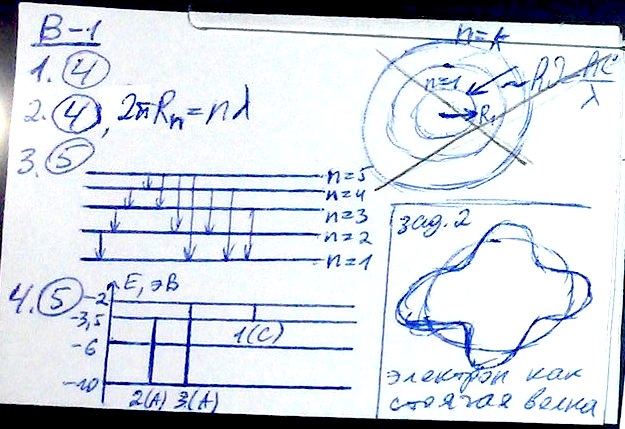 В-1
1. 4
2. 4, 2πRₙ=nλ
3. 5
n=5
n=4
n=3
n=2
n=1
4. 5
E, эВ
-2
-3,5
-6
-10
1(C)
2(A) 3(A)
n=1
R₁
зад. 2
электрон как
стоячая волна